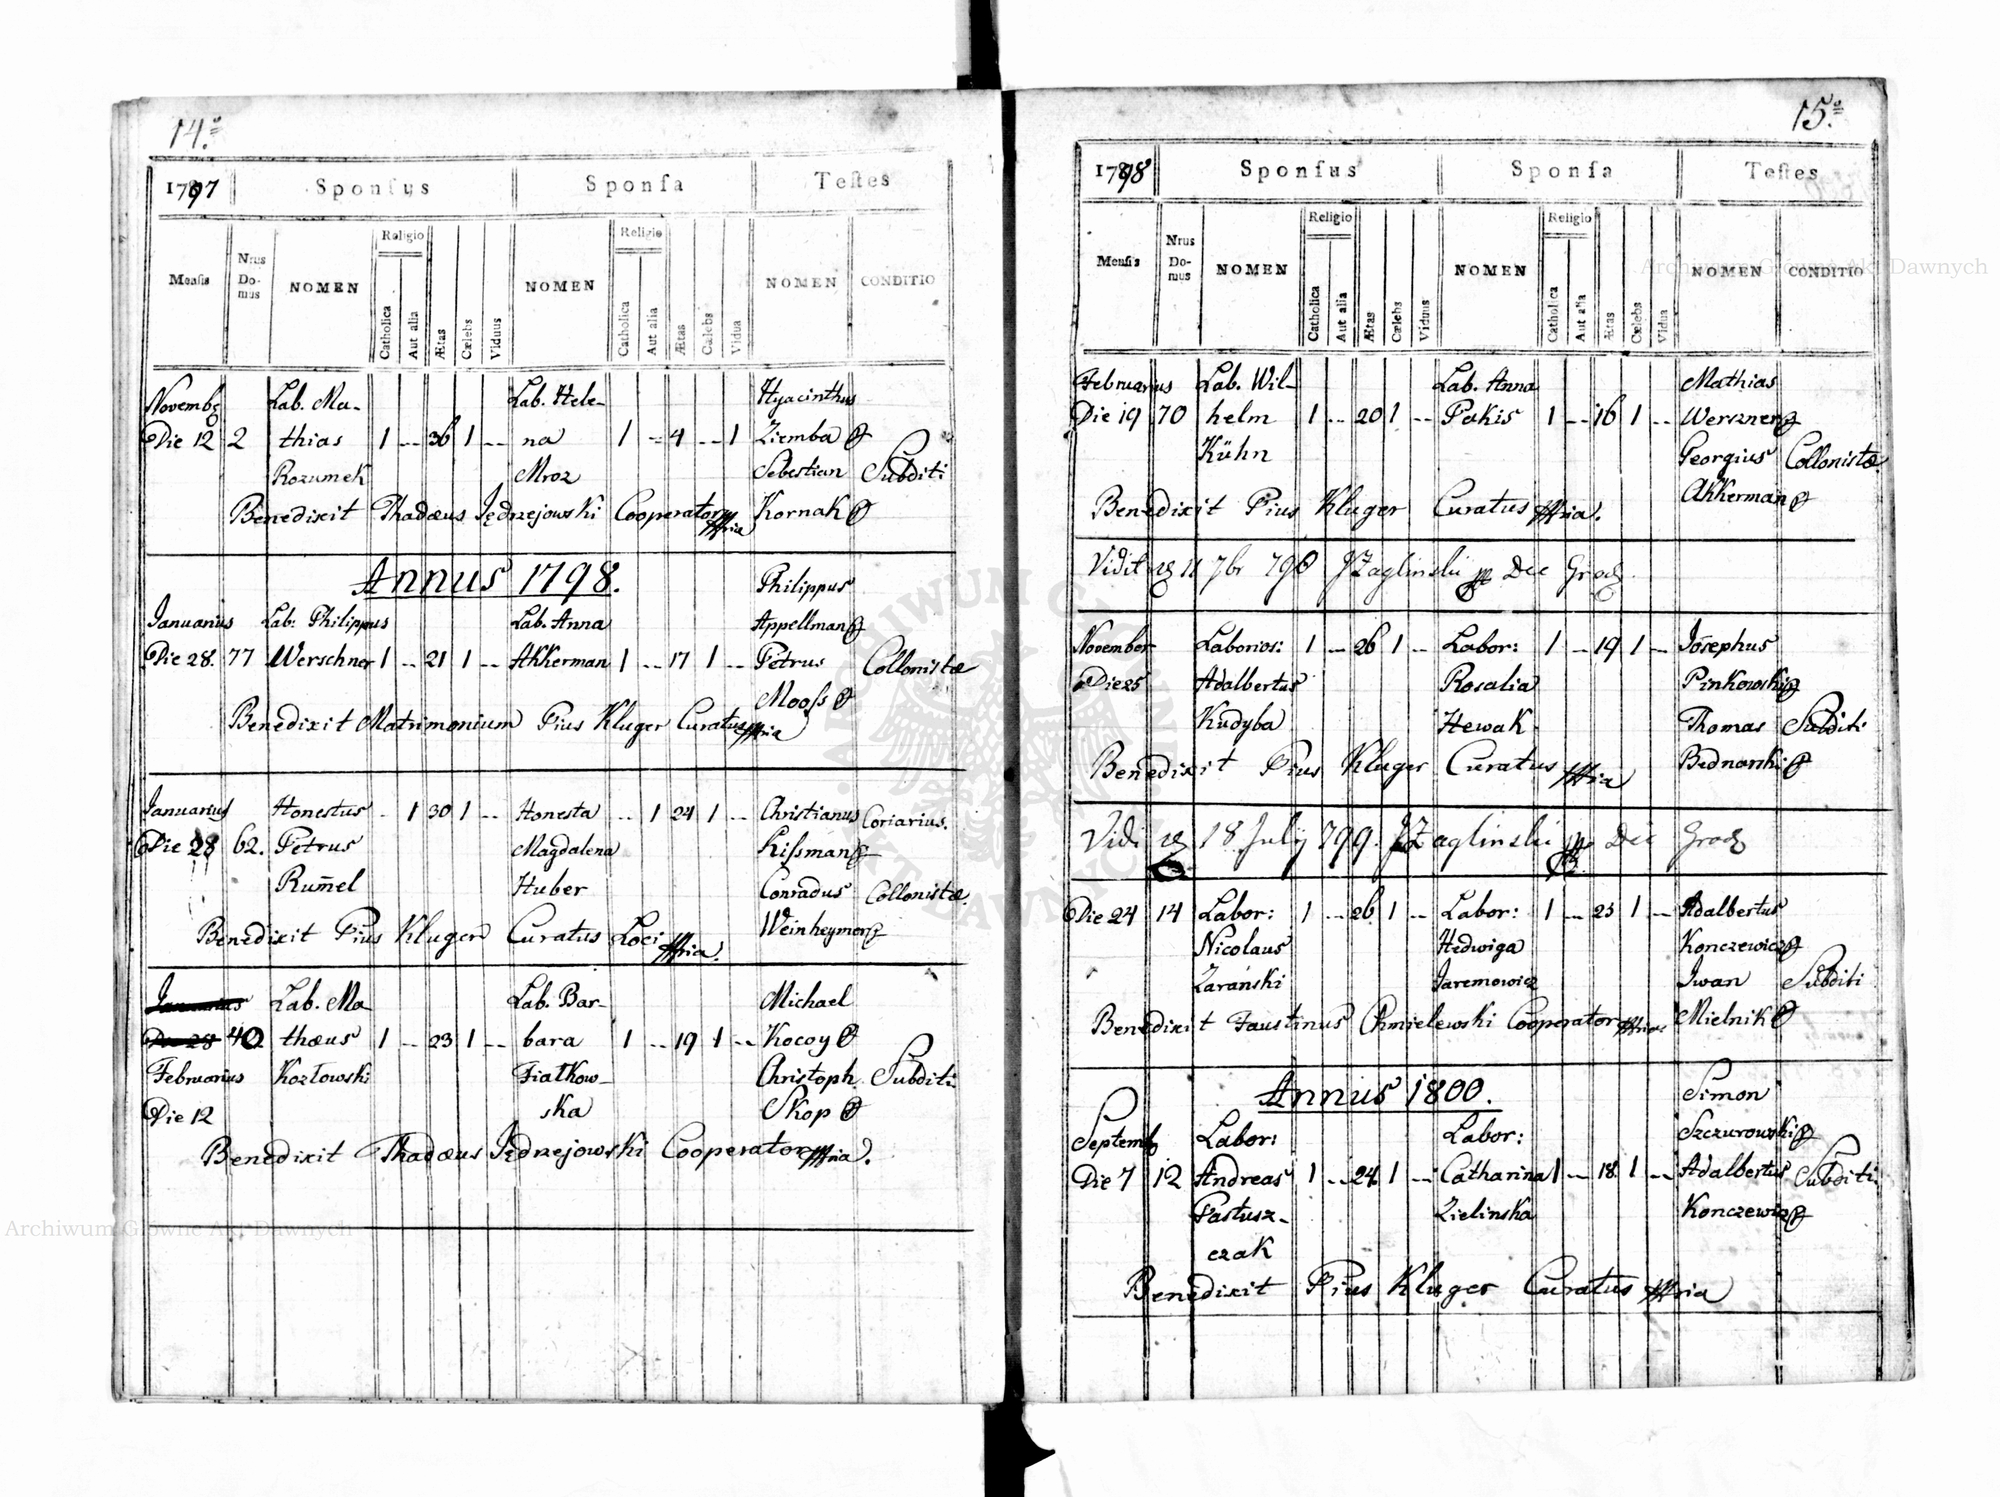 14.
1797 Sponsus Sponsa Testes
Mensis Nrus Domus NOMEN Religio Catholica Aut alia Ætas Cælebs Viduus NOMEN Religio Catholica Aut alia Ætas Cælebs Vidua NOMEN CONDITIO
Novemb Lab. Ma- Lab. Hele- Hyacinthus
Die 12 2 thias 1 -- 36 1 -- na 1 - 4 -- 1 Ziemba
Rozumek Mroz Sebestian Subditi
Benedixit Thadæus Jędrzejowski Cooperator Kornak
Annus 1798. Philippus
Januarius Lab: Philippus Lab. Anna Appellman
Die 28. 77 Werschner 1 -- 21 1 -- Akkerman 1 -- 17 1 -- Petrus Collonistæ
Mooss
Benedixit Matrimonium Pius Kluger Curatus
Januarius Honestus - 1 30 1 -- Honesta -- 1 24 1 -- Christianus Coriarius.
Die 28 62. Petrus Magdalena Kissman
Rum̄el Huber Conradus Collonistæ.
Benedixit Pius Kluger Curatus Loci Weinheymer
Januarius Lab. Ma- Lab. Bar- Michael
Die 28 40 thæus 1 -- 23 1 -- bara 1 -- 19 1 -- Kocoy
Februarius Kozłowski Fiałkow- Christoph. Subditi
Die 12 ska Skop
Benedixit Thadæus Jędrzejowski Cooperator
15.
1798 Sponsus Sponsa Testes
Mensis Nrus Domus NOMEN Religio Catholica Aut alia Ætas Cælebs Viduus NOMEN Religio Catholica Aut alia Ætas Cælebs Vidua NOMEN CONDITIO
Februarius Lab. Wil- Lab. Anna Mathias
Die 19 70 helm 1 -- 20 1 -- Pakis 1 -- 16 1 -- Werzner
Kühn Georgius Collonistæ
Benedixit Pius Kluger Curatus Akkerman
Vidit 11 7br JZaglinski Dec Grod
November Laborios: 1 -- 26 1 -- Labor: 1 - 19 1 -- Josephus
Die 25 Adalbertus Rosalia Pinkowski
Kudyba Hewak Thomas Subditi
Benedixit Pius Kluger Curatus Bednarski
Vidi 18 July 799. JZaglinski Dec Grod
Die 24 14 Labor: 1 -- 26 1 -- Labor: 1 -- 23 1 -- Adalbertus
Nicolaus Hedwiga Konczewicz
Zarański Jaremowicz Iwan Subditi
Benedixit Faustinus Chmielewski Cooperator Mielnik
Annus 1800. Simon
Septemb Labor: Labor: Szczurowski
Die 7 12 Andreas 1 -- 24 1 -- Catharina 1 -- 18 1 -- Adalbertus Subditi
Pastusz- Zielinska Konczewicz
czak
Benedixit Pius Kluger Curatus
Archiwum Główne Akt Dawnych
Archiwum Główne Akt Dawnych
ARCHIWUM GŁÓWNE AKT DAWNYCH